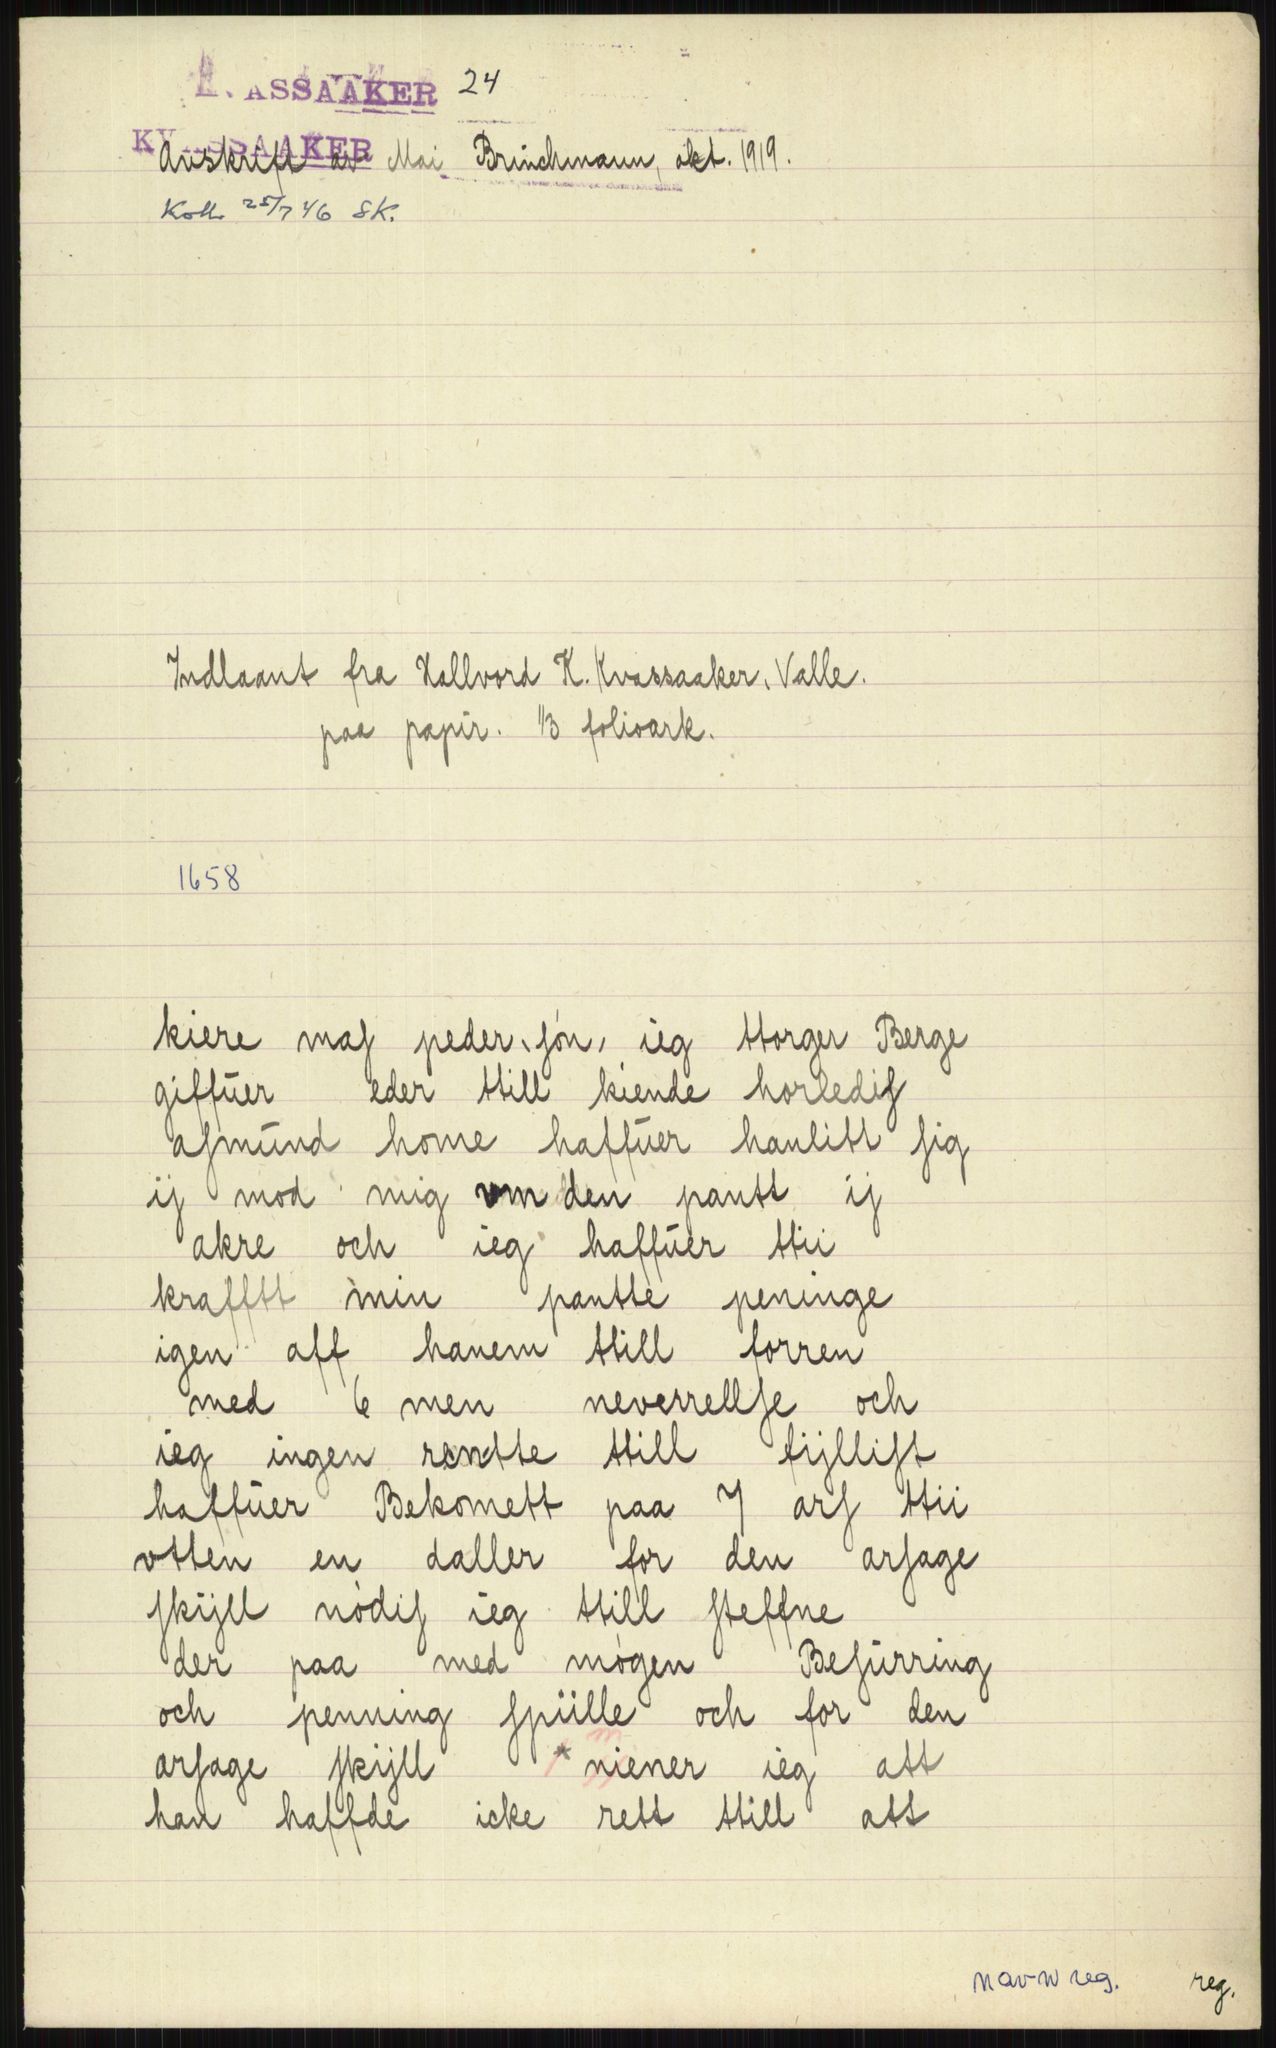 KVASSAAKER 24
KVASSAAKER
Avskrift av Mai Brinchmann, okt. 1919.
Koll. 25/7 46 SK.
Indlaant fra Hallvord K. Kvassaaker, Valle.
paa papir. 1/3 folioark.
1658
kiere maſ peder, ſón, ieg ttorger Berge
giffúer eder ttill kiende horlediſ
aſmúnd home haffúer hanlitt ſig
ij mod mig vm den pantt ij
akre och ieg haffúer ttii
krafftt min pantte peninge
igen aff hanem ttill forren
med 6 men neverrellſe och
ieg ingen rentte ttill fijlliſt
haffúer Bekomett paa 7 arſ ttii
vtten en daller for den arſage
ſkijll nódiſ ieg ttill ſteffne
der paa med mógen Beſúrring
och penning ſpiille och for den
arſage ſkijll * niener ieg att
han haffde icke rett ttill att
navn reg. reg.